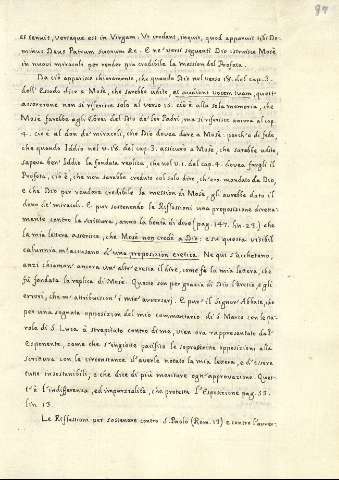 97
et tenuit, versaque est in Virgam. Ut credant, inquit, quod apparuit tibi Do-
minus Deus Patrum suorum &c. E ne' versi seguenti Dio istruisce Mosè
in nuovi miracoli per render più credibile la mession del Profeta.
Da ciò apparisce chiaramente, che quando Dio nel verso 18. del cap. 3.
dell' Esodo dice a Mosè, che sarebbe udito, et audient vocem tuam, quest'
asserzione non si riferisce solo al verso 15. ciò è alla sola memoria, che
Mosè farebbe agli Ebrei del Dio de' lor Padri, ma si riferisce ancora al cap.
4. ciò è al don de' miracoli, che Dio dovea dare a Mosè: perch'è di fede,
che quando Iddio nel v. 18. del cap. 3. assicurò a Mosè, che sarebbe udito,
sapeva ben' Iddio la fondata replica, che nel v. 1. del cap. 4. dovea fargli il
Profeta, ciò è, che non sarebbe creduto col solo dire, ch'era mandato da Dio,
e che Dio per rendere credibile la mession di Mosè, gli avrebbe dato il
dono de' miracoli. E pur sostenendo le Riflessioni una proposizione diretta-
mente contro la scrittura, anno la bontà di dire (pag. 147. lin. 23.) che
la mia lettera asserisce, che Mosè non credè a Dio: e su questa visibil
calunnia m'accusano d'una proposizion eretica. Ne qui s'acchetano,
anzi chiaman' ancora un' altr' eresia il dire, come fà la mia lettera, che
fù fondata la replica di Mosè. Queste son per grazia di Dio l'eresie, e gli
errori, che m'attribuiscon' i miei avversarj. E pur' il Signor Abbate, che
per una sognata opposizion del mio commentario di S. Marco con la pa-
rola di S. Luca à strepitato contro di me, vien ora rappresentato dall'
Esponente, come che s'inghiotte pacifico le soprascritte opposizioni alla
scrittura con la circostanza d'averle notato la mia lettera, e d'essere
tutte insostenibili, e che dice di più meritare ogni approvazione. Ques-
t'è l'indifferenza, ed imparzialità, che protesta l'Esposizione pag. 53.
lin. 13.
Le Riflessioni per sostenere contro S. Paolo (Rom. 13) e contro l'auver-